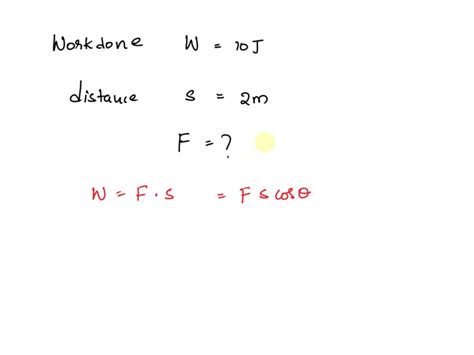 Workdone W = 10J
distance s = 2m
F = ?
W = F . s = F s cosθ